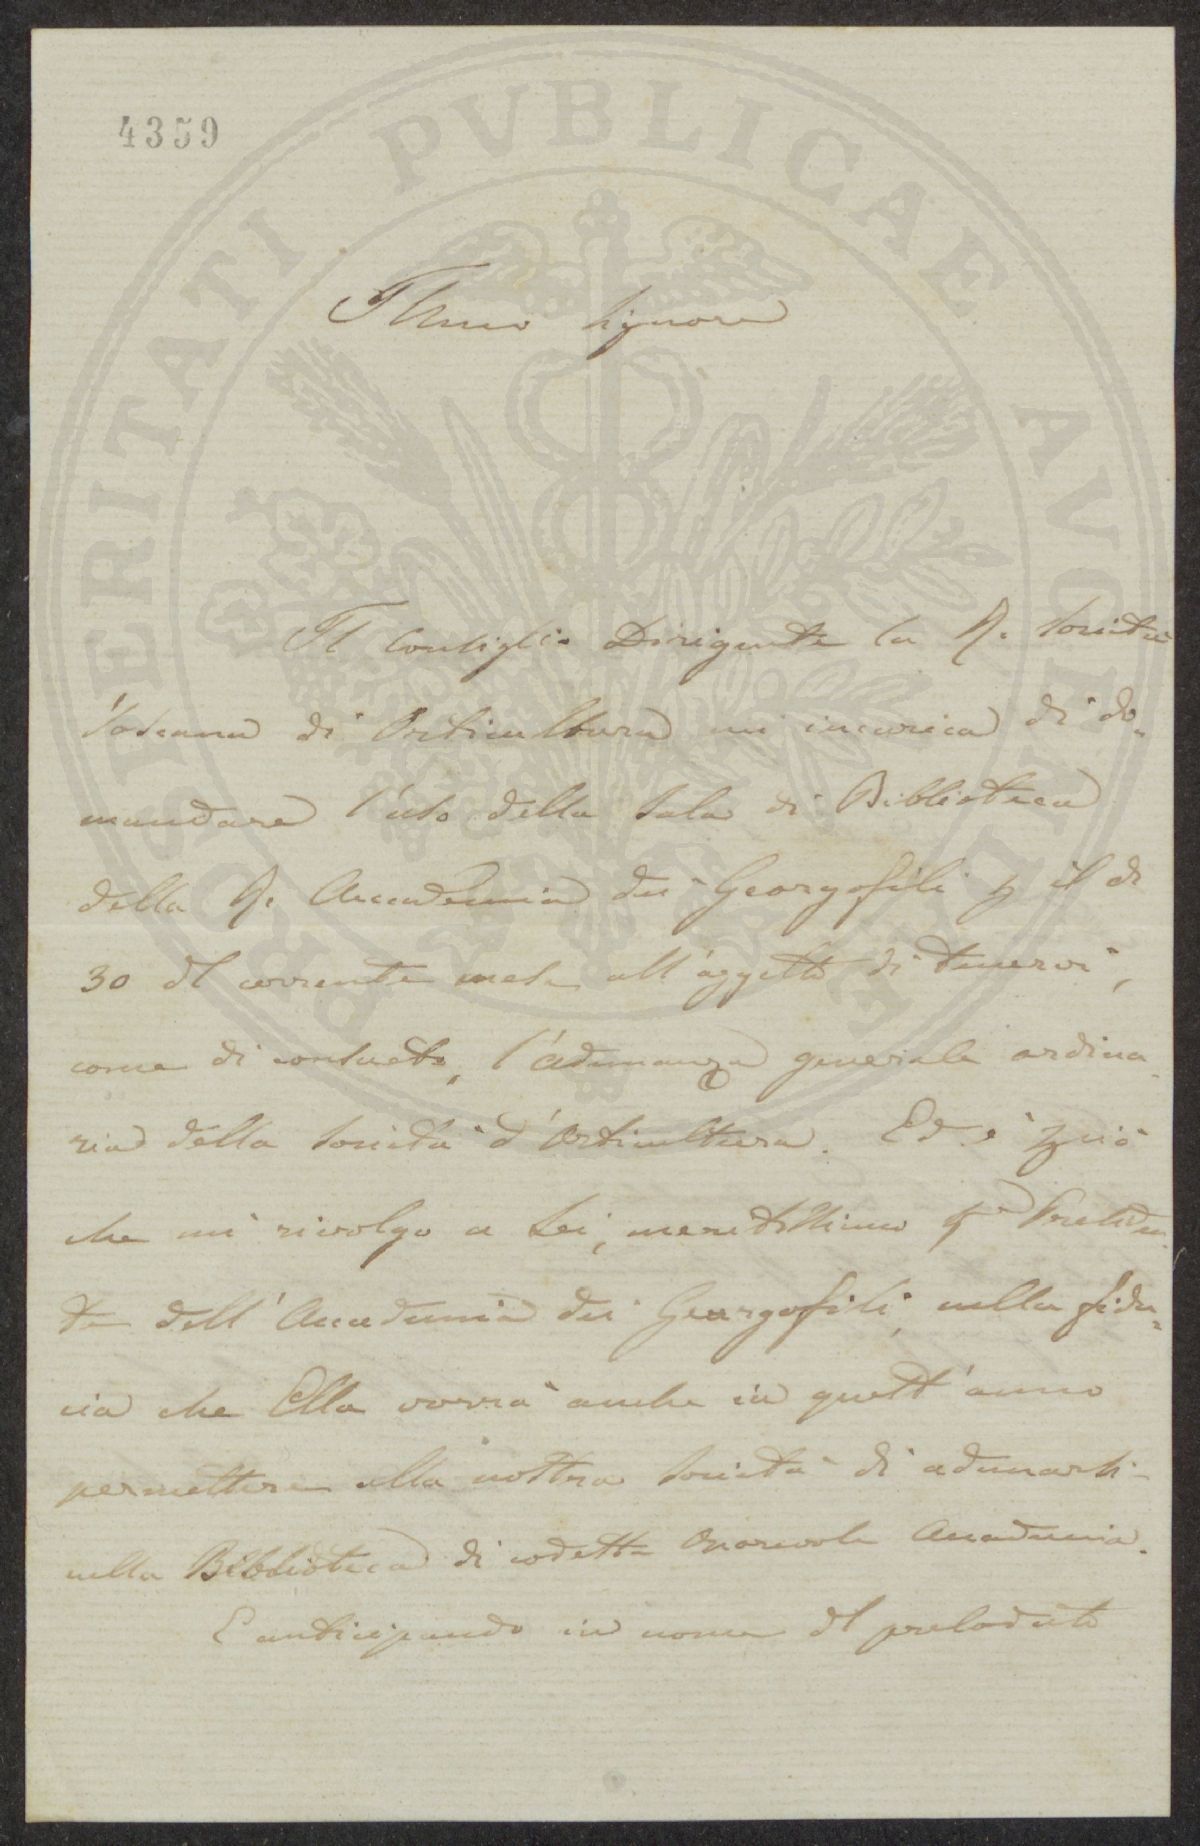 4359
PROSPERITATI PVBLICAE AVGENDAE
Illmo Signore
Il Consiglio Dirigente la R. Società
Toscana di Orticultura mi incarica di do-
mandare l'uso della Sala di Biblioteca
della R. Accademia dei Georgofili p il dì
30 del corrente mese all'oggetto di tenervi,
come di consueto, l'adunanza generale ordina-
ria della Società d'Orticultura. Ed è p ciò
che mi rivolgo a Lei, meritissimo Presiden-
te dell'Accademia dei Georgofili, nella fidu-
cia che Ella vorrà anche in quest'anno
permettere alla nostra Società di adunarsi
nella Biblioteca di codesta Onorevole Accademia.
E anticipando in nome del prelodato